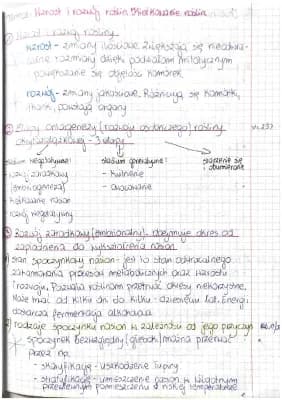 Temat: Wzrost i rozwój roślin. Kiełkowanie roślin
① Wzrost i rozwój rośliny
wzrost - zmiany ilościowe. Zwiększają się nieodwra-
calne rozmiary dzięki podziałom mitotycznym
powiększanie się objętości komórek
rozwój - zmiany jakościowe. Różnicują się komórki,
tkanki, powstają organy
② Etapy ontogenezy (rozwoju osobniczego) rośliny
okrytozalążkowej - 3 etapy
stadium wegetatywne:
rozwój zarodkowy
(embriogeneza)
kiełkowanie nasion
rozwój wegetatywny
stadium generatywne:
- kwitnienie
- owocowanie
starzenie się
i obumieranie
③ Rozwój zarodkowy (embrionalny) - obejmuje okres od
zapłodnienia do wykształcenia nasion
1) stan spoczynkowy nasion - jest to stan odwracalnego
zahamowania procesów metabolicznych oraz wzrostu
i rozwoju. Pozwala roślinom przetrwać okresy niekorzystne.
Może trwać od kilku dni do kilku - dziesięciu lat. Energii
dostarcza fermentacja alkoholowa
2) rodzaje spoczynku nasion w zależności od jego przyczyn
• spoczynek bezwzględny (głęboki) można przerwać
przez np.
- skaryfikację - uszkodzenie łupiny
- stratyfikację - umieszczenie nasion w wilgotnym
przewiewnym pomieszczeniu o niskiej temperaturze